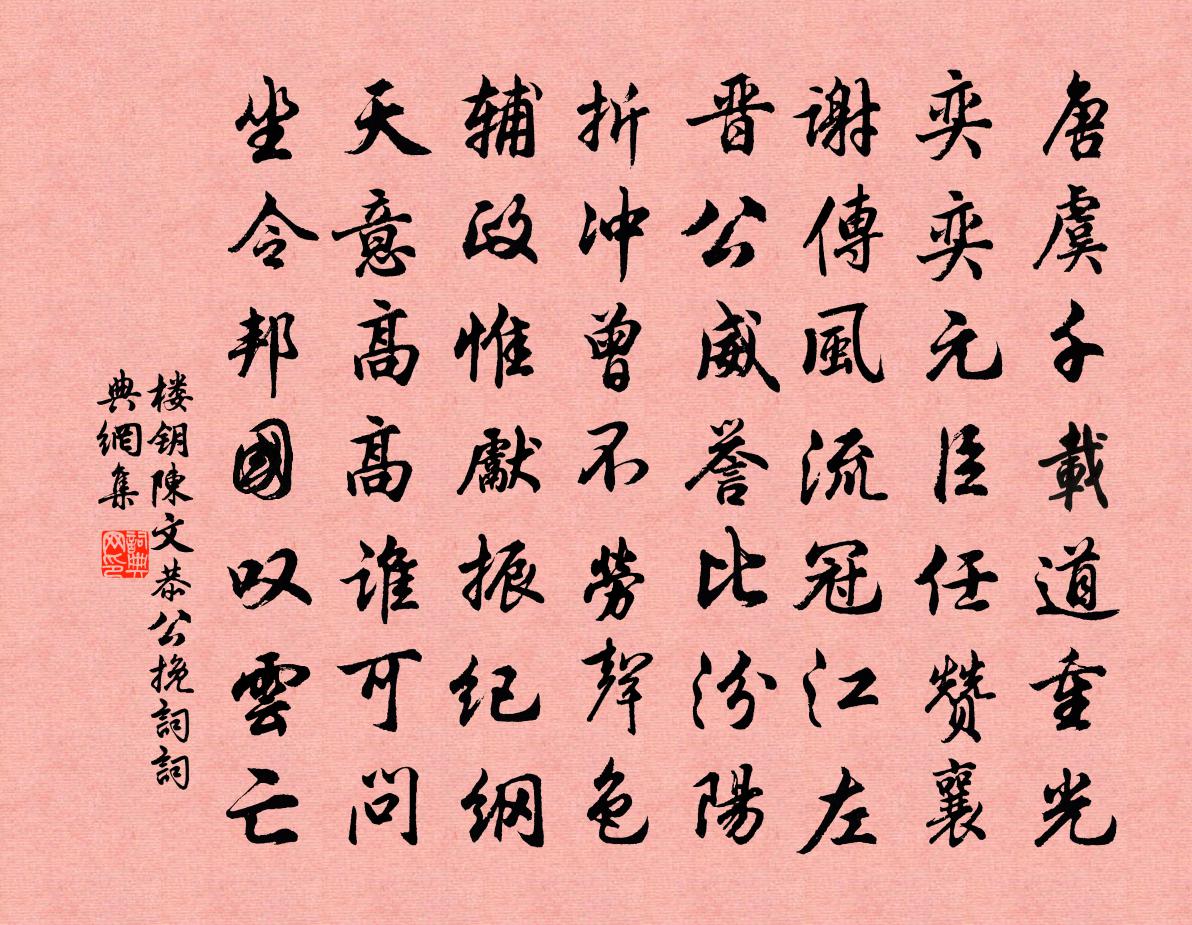 唐虞千載道重光
奕奕元臣任赞襄
谢傳風流冠江左
晋公威誉比汾陽
折冲曾不劳聲色
辅政惟獻振纪纲
天意高高谁可问
坐令邦國叹雲亡
楼钥陳文恭公挽詞詞
典網集
詞典
网印